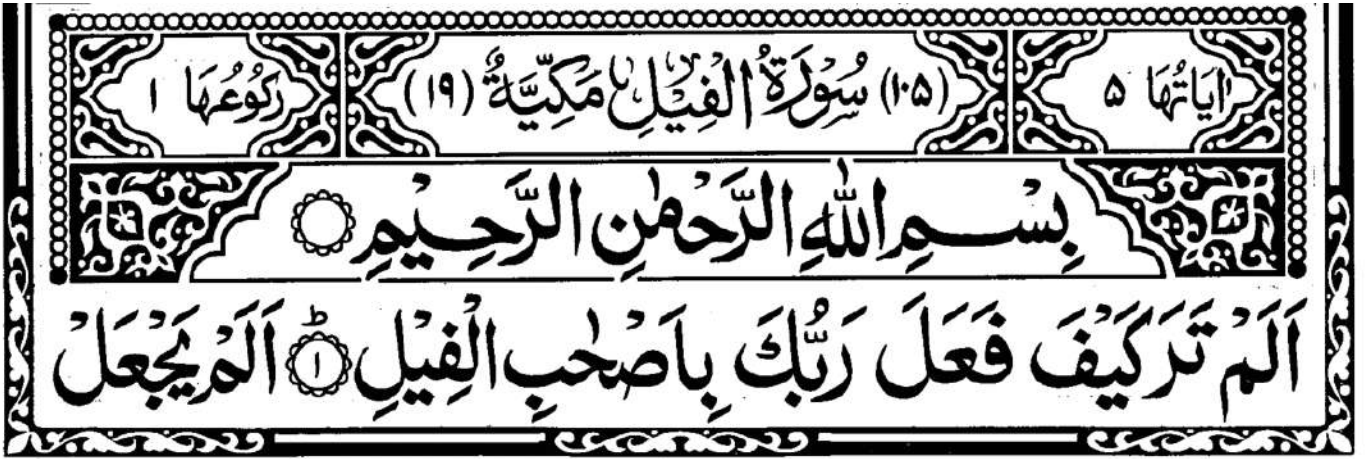 اٰيَاتُهَا ۵ (۱۰۵) سُوْرَةُ الْفِيْلِ مَكِّيَّةٌ (۱۹) رُكُوْعُهَا ۱
بِسْمِ اللّٰهِ الرَّحْمٰنِ الرَّحِيْمِ ۝
اَلَمْ تَرَ كَيْفَ فَعَلَ رَبُّكَ بِاَصْحٰبِ الْفِيْلِ ؕ ۝۱ اَلَمْ يَجْعَلْ